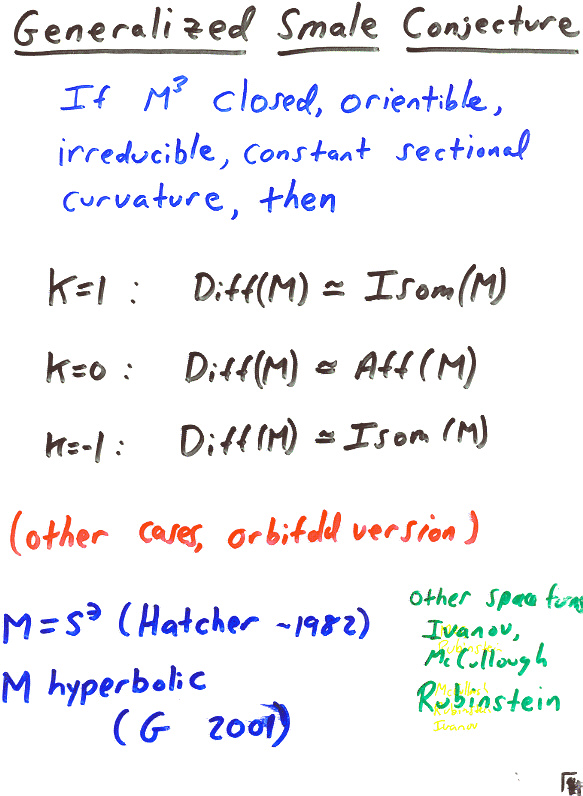 Generalized Smale Conjecture
If M³ closed, orientible,
irreducible, constant sectional
curvature, then
K=1 : Diff(M) ≃ Isom(M)
K=0 : Diff(M) ≃ Aff(M)
K=-1 : Diff(M) ≃ Isom(M)
(other cases, orbifold version)
M = S³ (Hatcher ~1982)
M hyperbolic
(G 2001)
other space forms
Ivanov,
McCullough
Rubinstein
Rubinstein
Ivanov